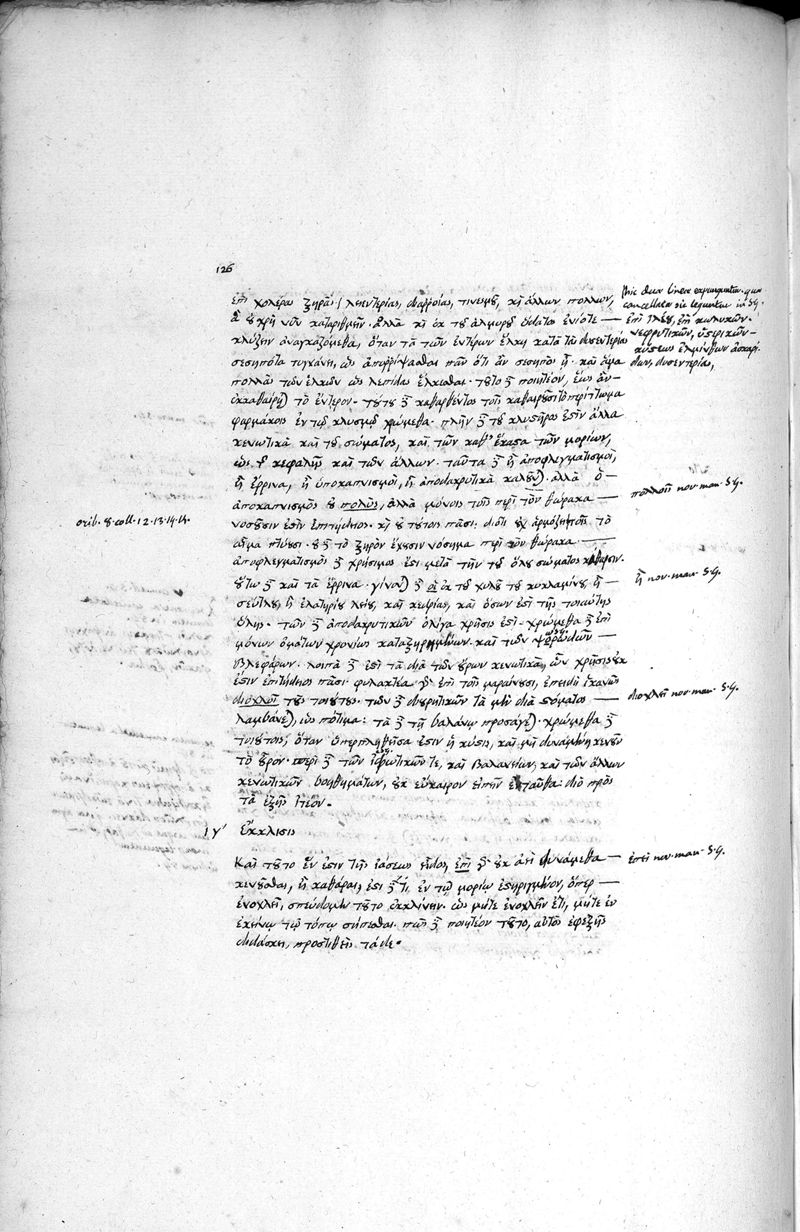 126
ἐπὶ χολέρας ξηρᾶς, λειεντερίας, διαρροίας, τινεσμοῦ, καὶ ἄλλων πολλῶν,
ἃ οὐ χρὴ νῦν καταριθμεῖν. ἀλλὰ καὶ ἐκ τοῦ ἁλμυροῦ ὕδατος ἐνίοτε —
κλύζειν ἀναγκαζόμεθα, ὅταν τὰ τῶν ἐντέρων ἕλκη κατὰ τὰς δυσεντερίας
σεσηπότα τυγχάνει, ὡς ἀπορρίψασθαι πᾶν ὅτι ἂν σεσηπὸς ᾖ. καὶ ἅμα
πολλὰς τῶν ἑλκῶν ὡς λεπίδας ἕλκεσθαι. τοῦτο γὰρ ποιητέον, ἕως ἂν
ἐκκαθαίρηται τὸ ἔντερον. τούτου δὲ καθαρθέντος τοῖς
φαρμάκοις ἐν τῷ κλυσμῷ χρώμεθα. πλὴν δὲ τοῦ κλυστῆρος ἐστὶν ἄλλα
κενωτικὰ καὶ τοῦ σώματος, καὶ τῶν καθ' ἕκαστα τῶν μορίων,
ὡς τῆς κεφαλῆς καὶ τῶν ἄλλων. ταῦτα δὲ ἢ ἀποφλεγματισμοὶ,
ἢ ἔρρινα, ἢ ὑποκαπνισμοὶ, ἢ ἀποδακρυτικὰ καλεῖται. ἀλλὰ ὁ —
ἀποκαπνισμὸς οὐ πολὺς, ἀλλὰ μόνοις τοῖς περὶ τὸν θώρακα —
νοσοῦσιν ἐστὶν ἐπιτήδειος. καὶ οὐ τούτοις πᾶσι. διότι οὐχ ἁρμόζει τοῖς τὸ
αἷμα πτύουσι. οὐδὲ τὸ ξηρὸν ἔχουσιν νόσημα περὶ τὸν θώρακα. —
ἀποφλεγματισμὸς δὲ χρήσιμος ἐστὶ μετὰ τὴν τοῦ ὅλου σώματος κάθαρσιν.
οὕτω δὲ καὶ τὰ ἔρρινα. γίνεται δὲ ἐκ τοῦ χυλοῦ τοῦ κυκλαμίνου, ἢ —
σεύτλου, ἢ ἐλατηρίου λείου, καὶ κεδρίας, καὶ ὅσων ἐστὶ τῆς τοιαύτης
ὕλης. τῶν δὲ ἀποδακρυτικῶν ὀλίγα χρῆσις ἐστὶ. χρώμεθα δὲ ἐπὶ
μόνων ὀμμάτων χρονίως καταξηραμμένων. καὶ τῶν ψωρωδῶν —
βλεφάρων. λοιπὰ δὲ ἐστὶ τὰ διὰ τῶν οὔρων κενωτικὰ, ὧν χρῆσις οὐκ
ἐστὶν ἐπιτήδειος πᾶσι. φυλακτέα γὰρ ἐπὶ τοῖς μαραίνουσι, ἐπειδὴ ἱκανῶς
διοχλοῖ τοὺς τοιούτους. τῶν δὲ διουρητικῶν τὰ μὲν διὰ στόματος —
λαμβάνεται, ὡς πότιμα: τὰ δὲ τῇ βαλάνῳ προσάγεται. χρώμεθα δὲ
τοιούτοις, ὅταν ὑπερπληθεῖσα ἐστὶν ἡ κύστις, καὶ μὴ δυναμένη κενοῦν
τὸ οὖρον. περὶ δὲ τῶν ἱδρωτικῶν τε, καὶ βαλανείων, καὶ τῶν ἄλλων
κενωτικῶν βοηθημάτων, οὐκ εὔκαιρον εἰπεῖν ἐνταῦθα: διὸ πρὸς
τὰ ἑξῆς ἰτέον.
ιγ' ἔκκλισις
Καὶ τοῦτο ἕν ἐστιν τῆς ἰάσεως εἶδος, ἐπὶ γὰρ οὐκ ἀεὶ δυνάμεθα —
κενοῦσθαι, ἢ καθᾶραι, ἔστι δέ τι, ἐν τῷ μορίῳ ἐστηριγμένον, ὅπερ —
ἐνοχλεῖ, σπεύδομεν τοῦτο ἐκκλίνειν. ὡς μήτε ἐνοχλεῖν ἔτι, μήτε ἐν
ἐκείνῳ τῷ τόπῳ σήπεσθαι. πῶς δὲ ποιητέον τοῦτο, αὐτὸς ἐφεξῆς
διδάσκει, προστιθεὶς τάδε.
hic duae lineae expunguntur, quae
cancellatae sic leguntur in S.G.
ἐπὶ ἰλεοῦ, ἐπὶ κωλικῶν.
νεφριτικῶν, ὑστερικῶν —
κύστεως ἑλμίνθων ἀσκαρί-
δων, δυσεντερίας,
πολλοῖς nov. man. S.G.
orib. 8. coll. 12. 13. 14. 15.
ἢ nov. man. S.G.
διοχλεῖ nov. man. S.G.
ἐπεὶ nov. man. S.G.